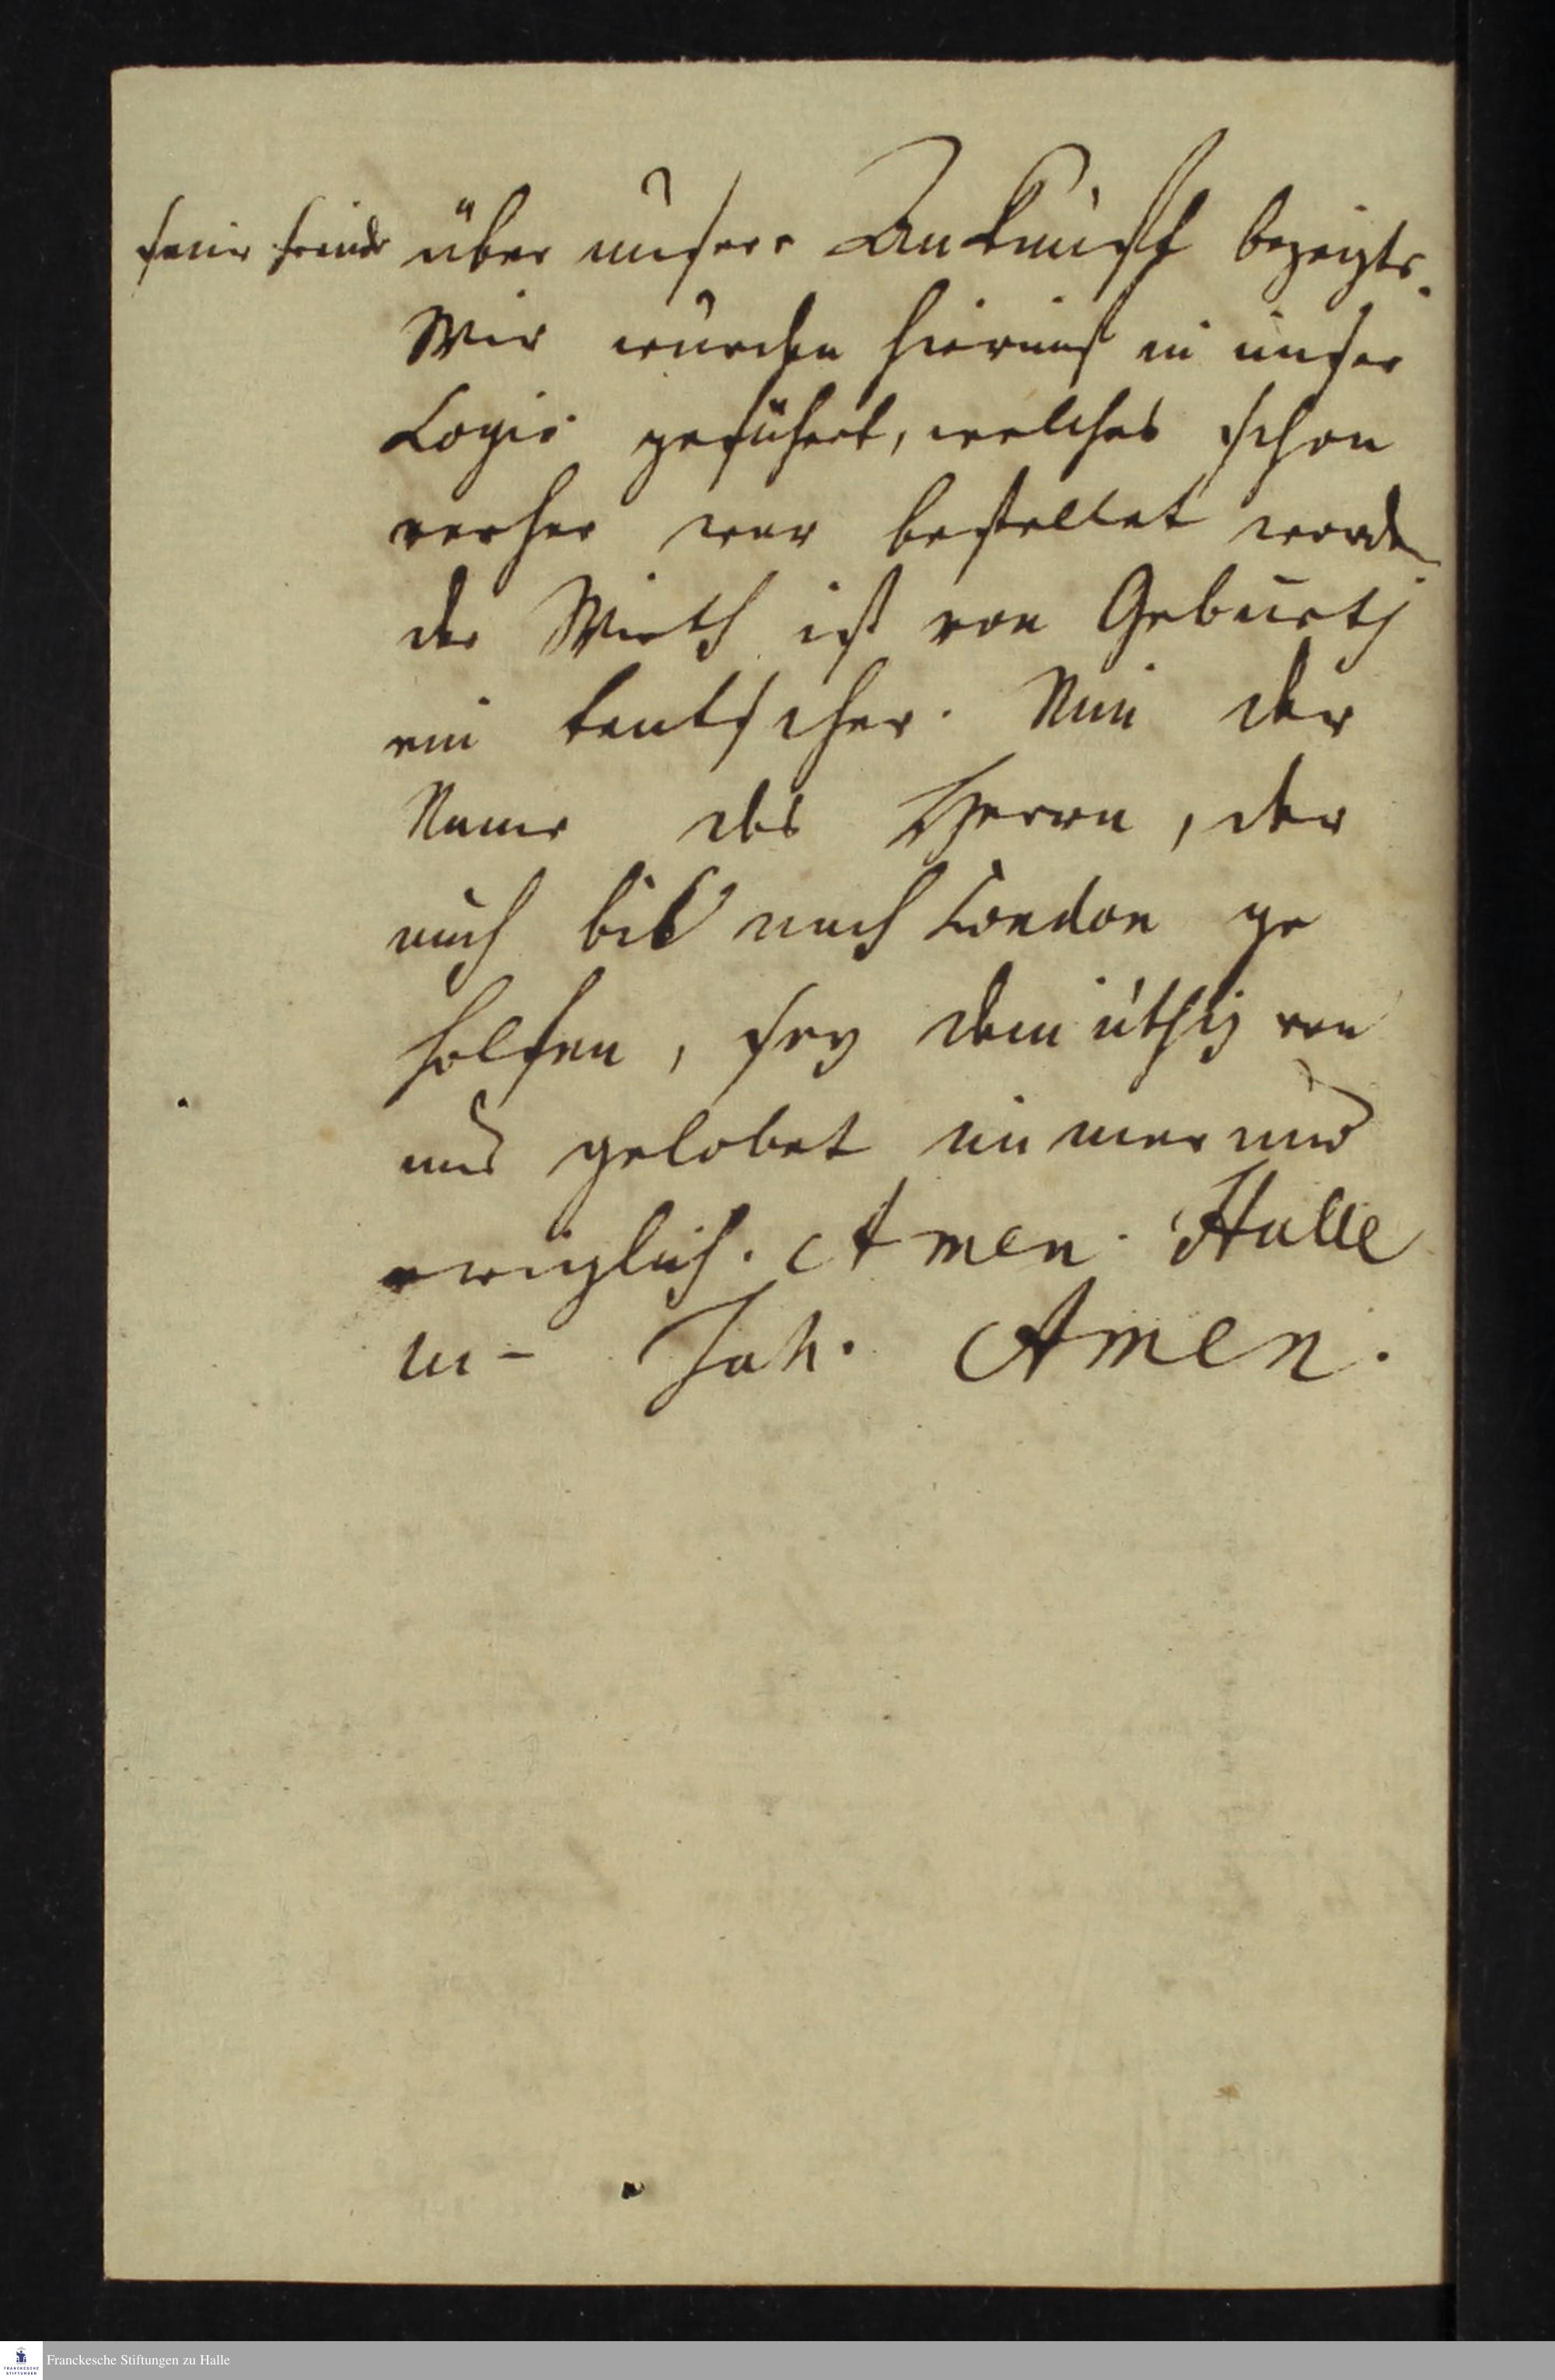 seine Freude über unsere Ankunfft bezeigte.
Wir wurden hierauf in unser
Logis geführt, welches schon
vorher war bestellet worden
der Wirth ist von Geburth
ein teutscher. Nun der
Name des Herrn, der
auch bis nach London ge
holfen, sey demüthig von
uns gelobet immer und
ewiglich. Amen. Halle
lu- Jah. Amen.
Franckesche Stiftungen zu Halle